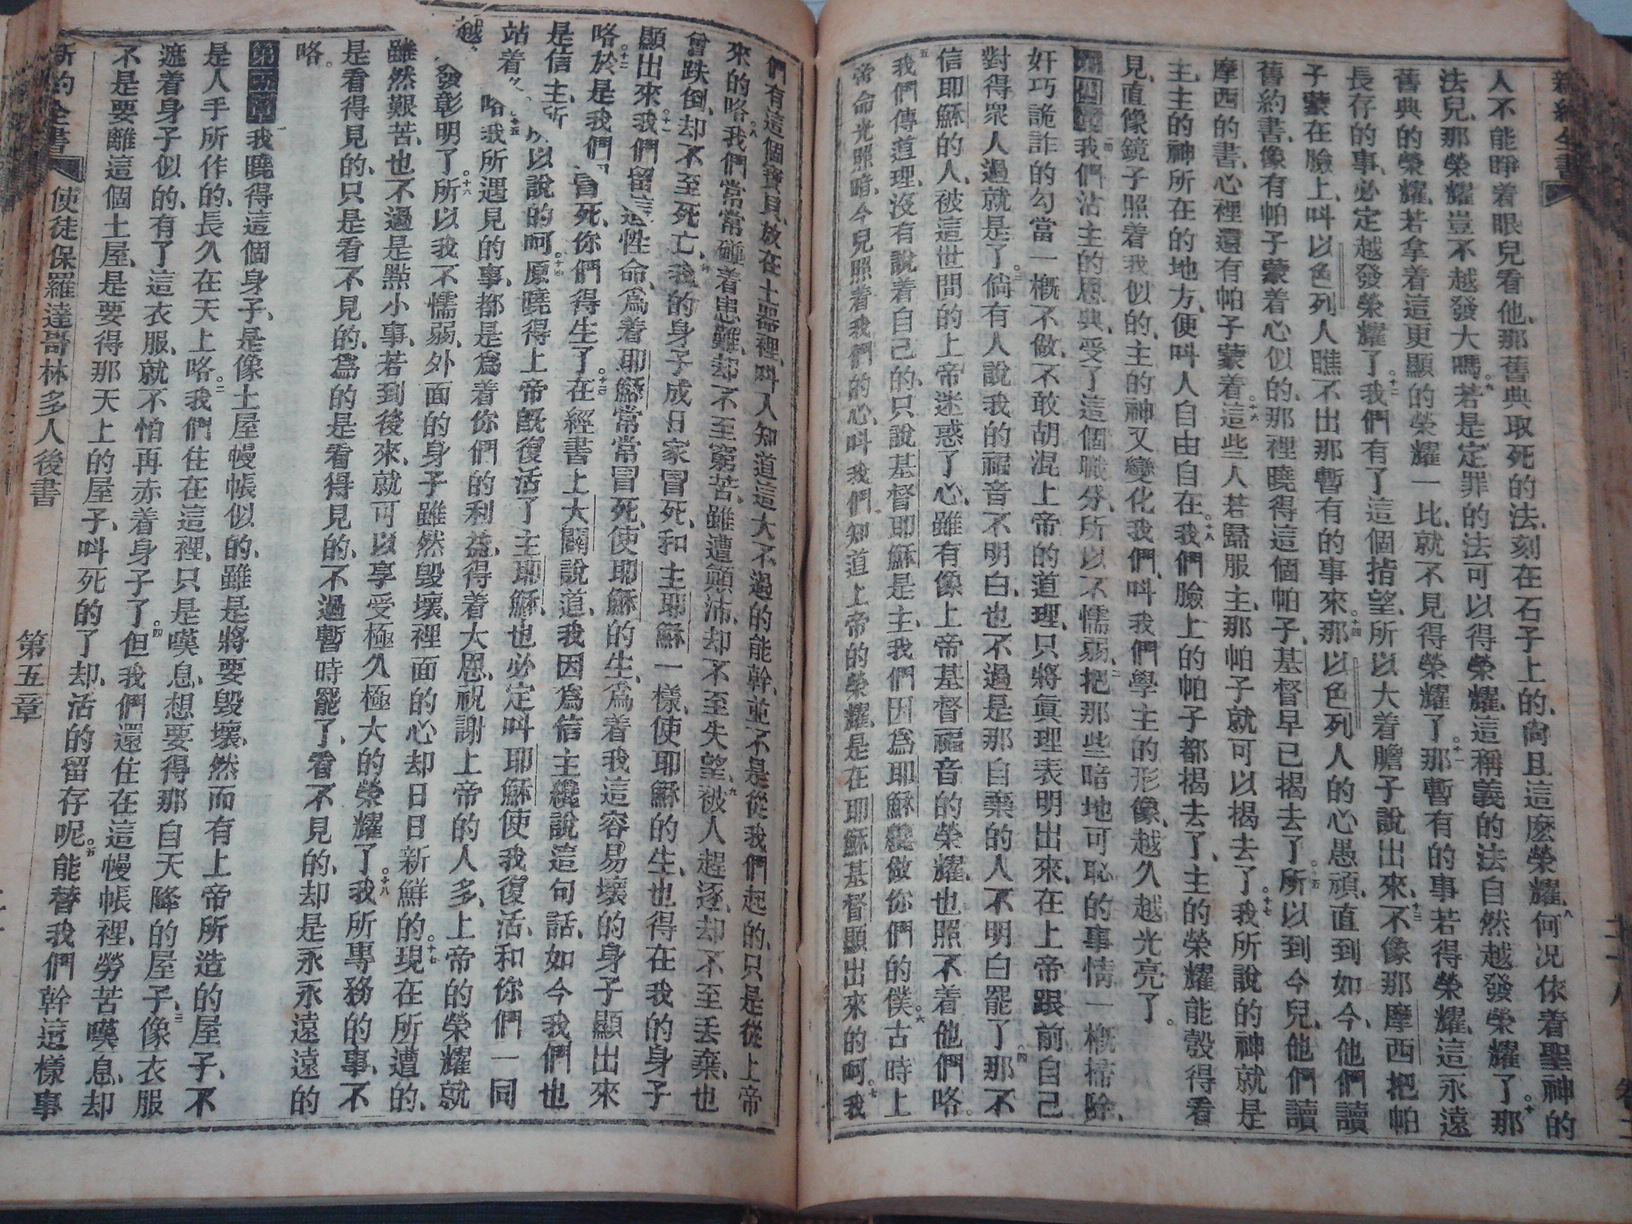 新約全書
人不能睜着眼兒看他、那舊典取死的法、刻在石子上的、尙且這麽榮耀、八何况依着聖神的
法兒、那榮耀豈不越發大嗎、九若是定罪的法、可以得榮耀、這稱義的法、自然越發榮耀了、十那
舊典的榮耀、若拿着這更顯的榮耀一比、就不見得榮耀了、十一那暫有的事、若得榮耀、這永遠
長存的事、必定越發榮耀了、十二我們有了這個指望、所以大着膽子說出來、十三不像那摩西把帕
子蒙在臉上、叫以色列人瞧不出那暫有的事來、十四那以色列人的心愚頑、直到如今、他們讀
舊約書、像有帕子蒙着心似的、那裡曉得這個帕子、基督早已揭去了、十五所以到今兒、他們讀
摩西的書、心裡還有帕子蒙着、十六這些人若歸服主、那帕子就可以揭去了、十七我所說的神就是
主、主的神所在的地方、便叫人自由自在、十八我們臉上的帕子都揭去了、主的榮耀能彀得看
見、直像鏡子照着我似的、主的神又變化我們、叫我們學主的形像、越久越光亮了。
第四章我們沾主的恩典、受了這個職分、所以不懦弱、二把那些暗地可恥的事情、一概掃除、
奸巧詭詐的勾當、一概不做、不敢胡混上帝的道理、只將眞理表明出來、在上帝跟前、自己
對得衆人過就是了、三倘有人說我的福音不明白、也不過是那自棄的人不明白罷了、四那不
信耶穌的人、被這世間的上帝迷惑了心、雖有像上帝基督福音的榮耀、也照不着他們咯。
五我們傳道理、沒有說着自己的、只說基督耶穌是主、我們因爲耶穌、纔做你們的僕。六古時上
帝命光照暗、今兒照着我們的心、叫我們知道上帝的榮耀、是在耶穌基督顯出來的呵。七我
們有這個寶貝、放在土器裡、叫人知道這大不過的能幹、並不是從我們起的、只是從上帝
來的咯、八我們常常碰着患難、却不至窮苦、雖遭顚沛、却不至失望、九被人趕逐、却不至丢棄、也
曾跌倒、却不至死亡、十我的身子成日家冒死、和主耶穌一樣、使耶穌的生、也得在我的身子
顯出來、十一我們留這性命、爲着耶穌、常常冒死、使耶穌的生、爲着我這容易壞的身子顯出來
咯、十二於是我們冒死、你們得生了、十三在經書上大闢說道、我因爲信主、纔說這句話、如今我們也
是信主、所以說的呵、十四原曉得上帝旣復活了主耶穌、也必定叫耶穌使我復活、和你們一同
站着咯、十五我所遇見的事、都是爲着你們的利益、得着大恩、祝謝上帝的人多、上帝的榮耀就
越發彰明了、十六所以我不懦弱、外面的身子雖然毀壞、裡面的心却日日新鮮的、十七現在所遭的、
雖然艱苦、也不過是點小事、若到後來、就可以享受極久極大的榮耀了、十八我所專務的事、不
是看得見的、只是看不見的、爲的是看得見的、不過暫時罷了、看不見的、却是永永遠遠的
咯。
第五章我曉得這個身子、是像土屋幔帳似的、雖是將要毀壞、然而有上帝所造的屋子、不
是人手所作的、長久在天上咯、二我們住在這裡、只是嘆息、想要得那自天降的屋子、三像衣服
遮着身子似的、有了這衣服、就不怕再赤着身子了、四但我們還住在這幔帳裡、勞苦嘆息、却
不是要離這個土屋、是要得那天上的屋子、叫死的了却、活的留存呢。五能替我們幹這樣事
新約全書 使徒保羅達哥林多人後書 第五章